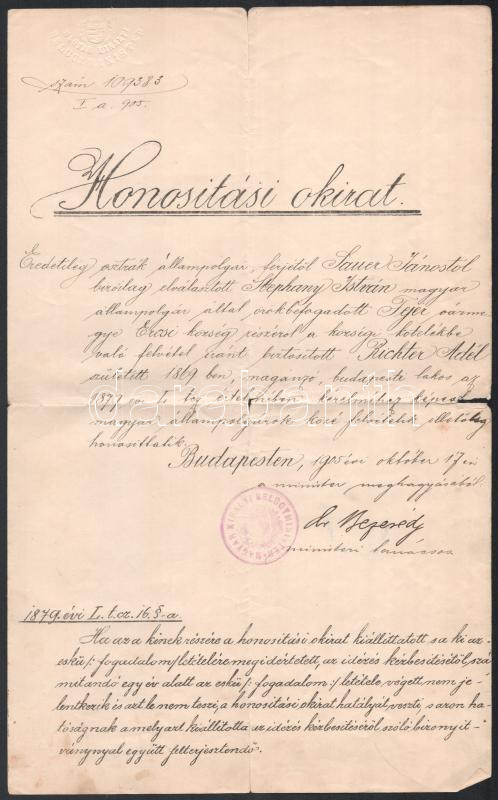 MAGYAR KIRÁLYI
BELÜGYMINISTER
szám 109383
I a. 905.
Honosítási okirat.
Eredetileg osztrák állampolgár, férjétől Sauer Jánostól
biróilag elválasztott Stephany István magyar
állampolgár által örökbefogadott Fejér várme
gye Ercsi község részéről a községi kötelékbe
való felvétel iránt biztosított Richter Adél
született 1869 ben, magánzó, budapesti lakos az
1879 évi L. tcz értelmében kérelméhez képest
magyar állampolgárok közé felvétetik illetőleg
honosittatik.
Budapesten, 1905 évi október 17 én
a minister meghagyásából:
dr Bezerédj
ministeri tanácsos
MAGYAR KIRÁLYI BELÜGYMINISTER
1879. évi L. t. cz. 16. §-a.
Ha az a kinek részére a honosítási okirat kiállíttatott s a ki az
eskü /: fogadalom/ letételére megidéztetett, az idézés kézbesítésétől, szá
mítandó egy év alatt az eskü /: fogadalom :/ letétele végett nem je-
lentkezik és azt le nem teszi, a honosítási okirat hatályát veszti, s azon ha-
tóságnak a mely azt kiállította az idézés kézbesítéséről szóló bizonyít-
ványnyal együtt felterjesztendő".
darabanth